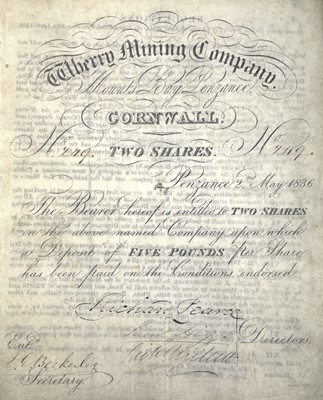 Wherry Mining Company.
Mounts Bay Penzance
CORNWALL.
No. 249. TWO SHARES. No. 249.
Penzance 2nd May 1836
The Bearer hereof is entitled to TWO SHARES
in the above named Company upon which
a Deposit of FIVE POUNDS per Share
has been paid on the Conditions endorsed
Richard Pearce
Directors
Entd.
Secretary